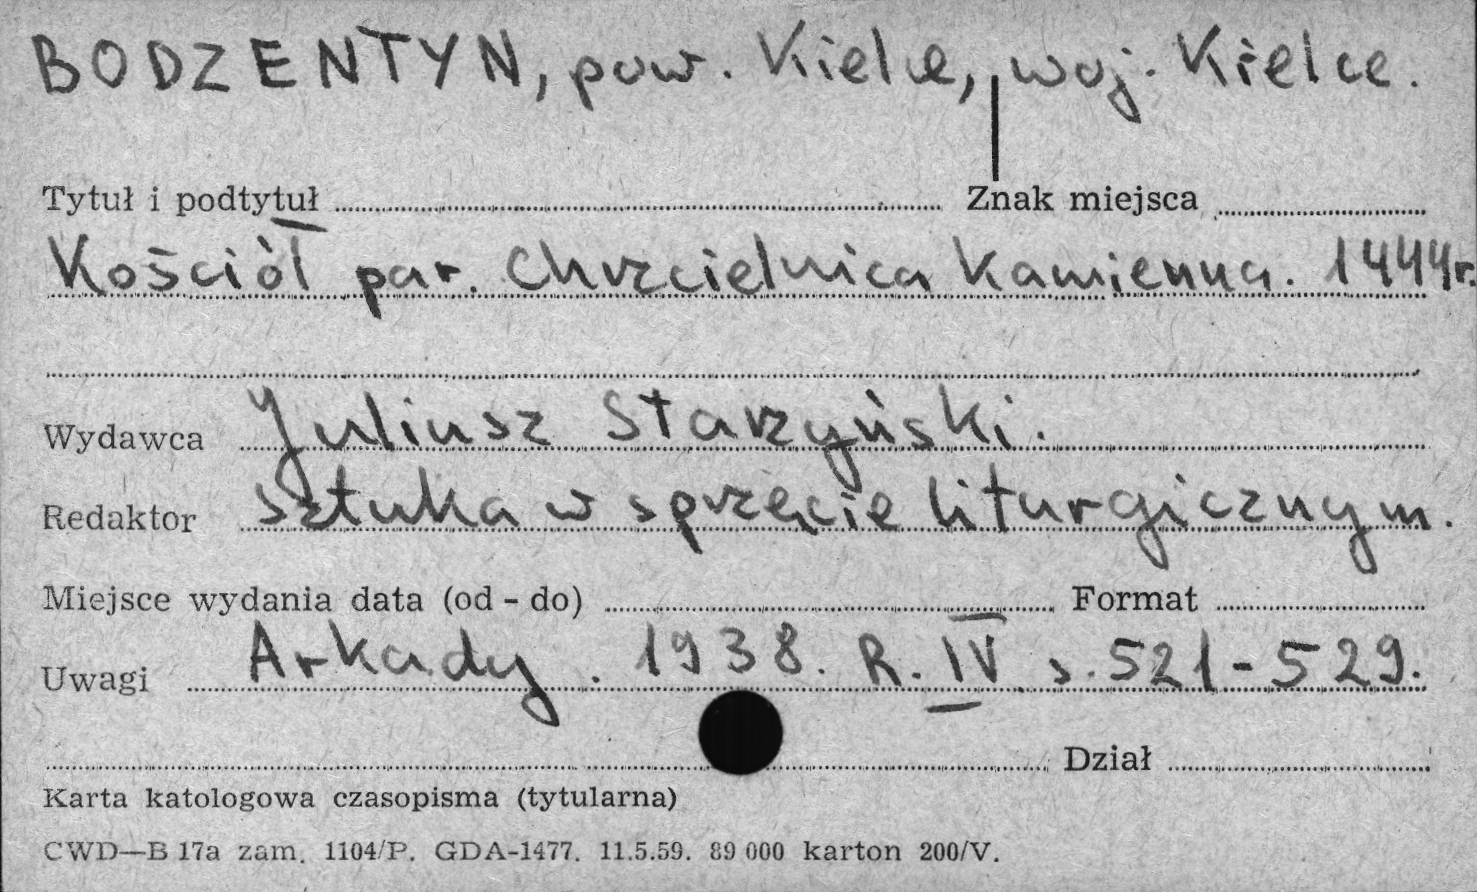 BODZENTYN, pow. Kielce, woj. Kielce.
Tytuł i podtytuł Znak miejsca
Kościół par. Chrzcielnica kamienna. 1444r.
Wydawca Juliusz Starzyński.
Redaktor Sztuka w sprzęcie liturgicznym.
Miejsce wydania data (od - do) Format
Uwagi Arkady. 1938. R. IV s. 521-529.
Dział
Karta katologowa czasopisma (tytularna)
CWD—B 17a zam. 1104/P. GDA-1477. 11.5.59. 89 000 karton 200/V.